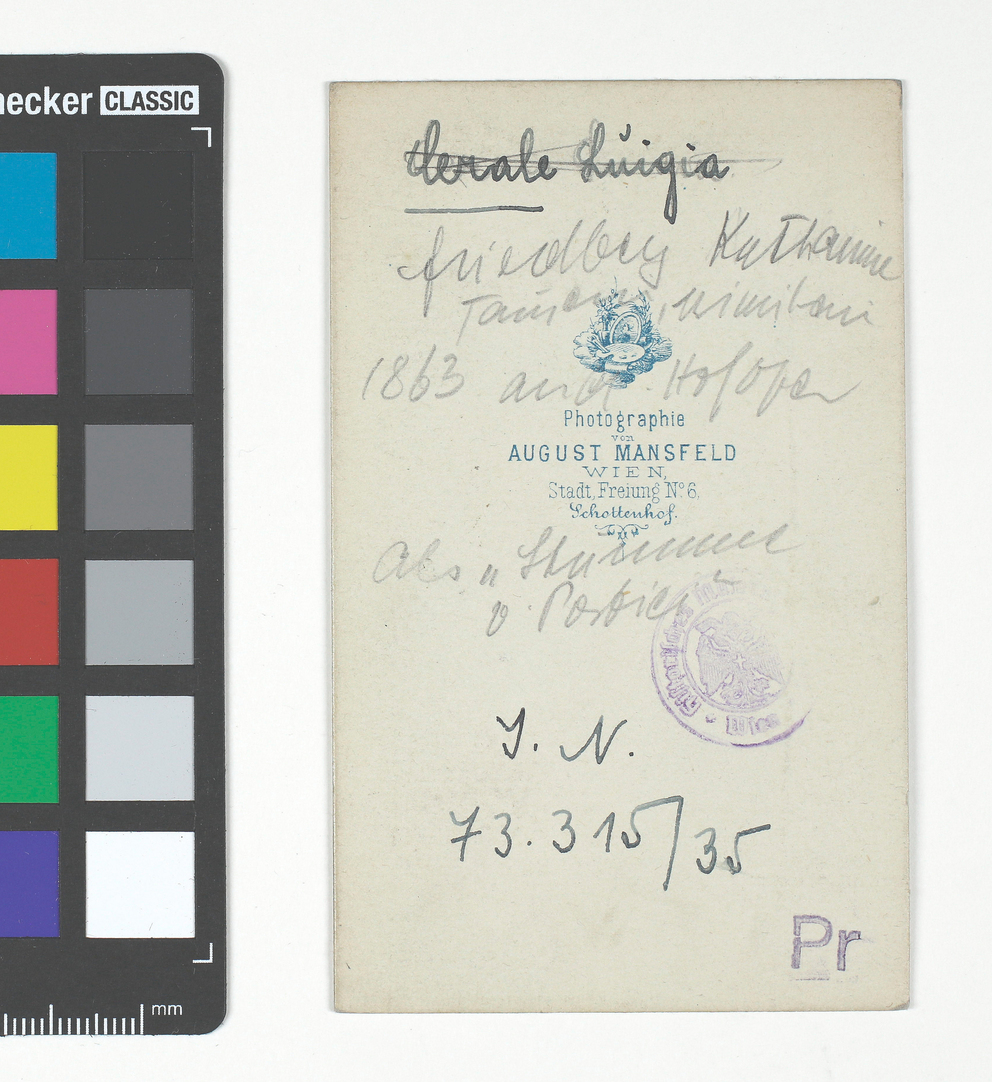 ecker CLASSIC
Cerale Luigia
Friedberg Katharine
Tänzerin, Mimikerin
1863 an d. Hofoper
Photographie
von
AUGUST MANSFELD
WIEN,
Stadt, Freiung No. 6,
Schottenhof.
Als „Stumme
v Portici"
WIEN
J. N.
73.315/35
Pr
mm